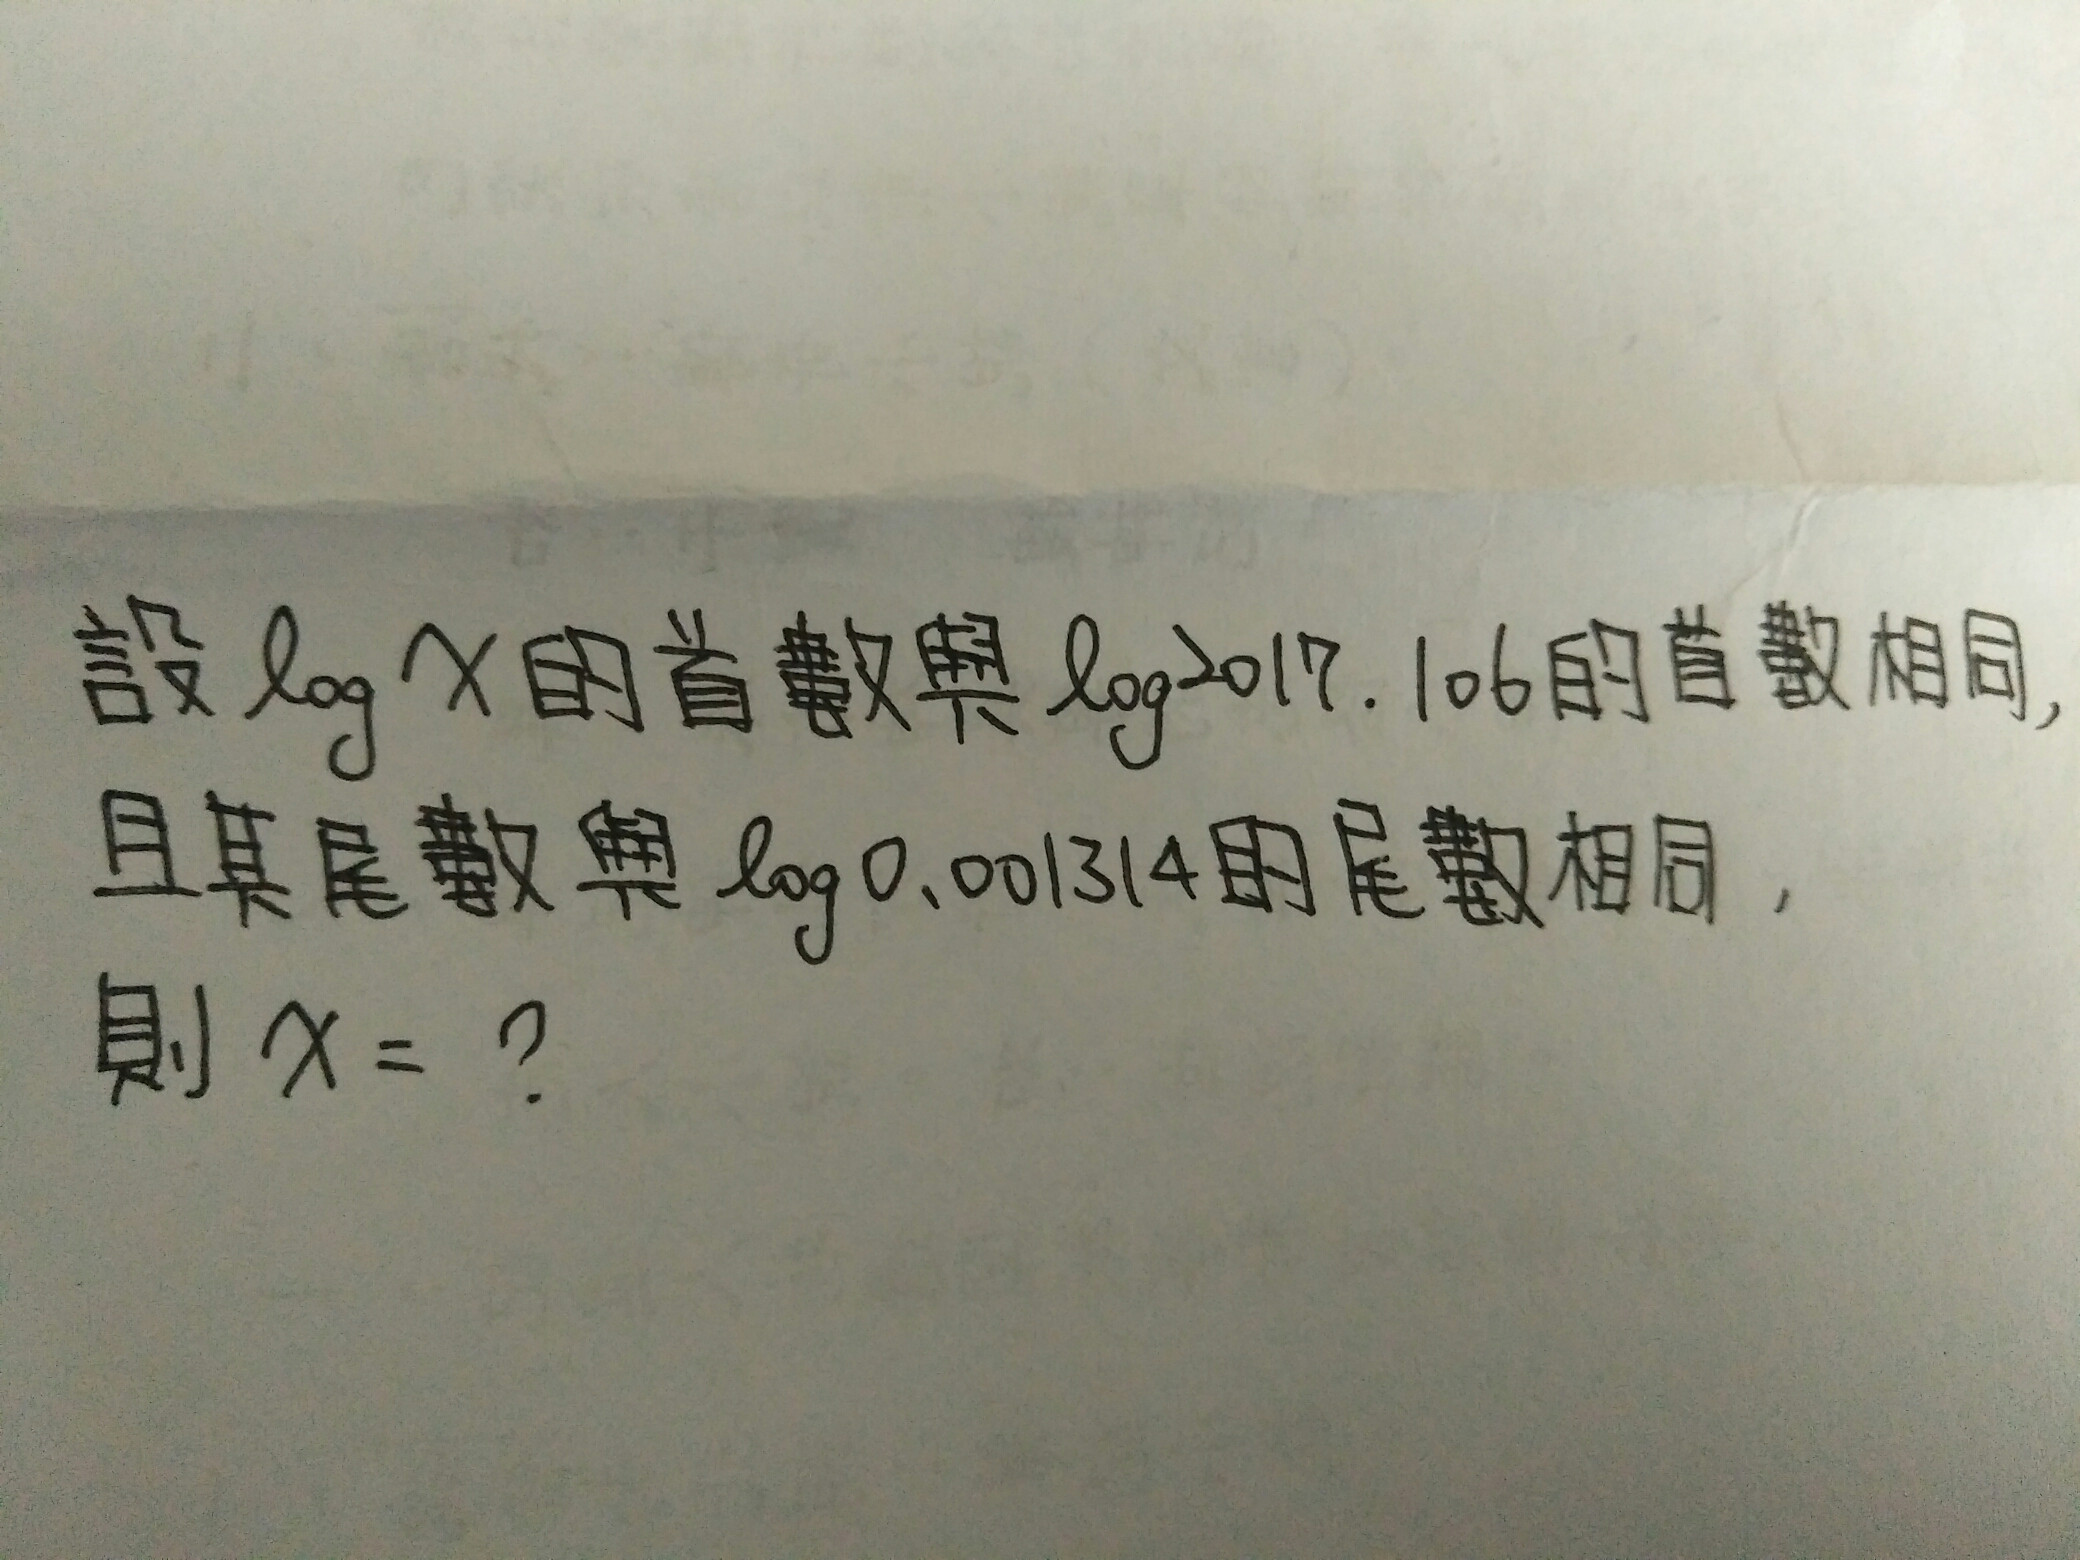 設 log x 的首數與 log2017.106的首數相同,
且其尾數與 log0.001314的尾數相同,
則 x = ?